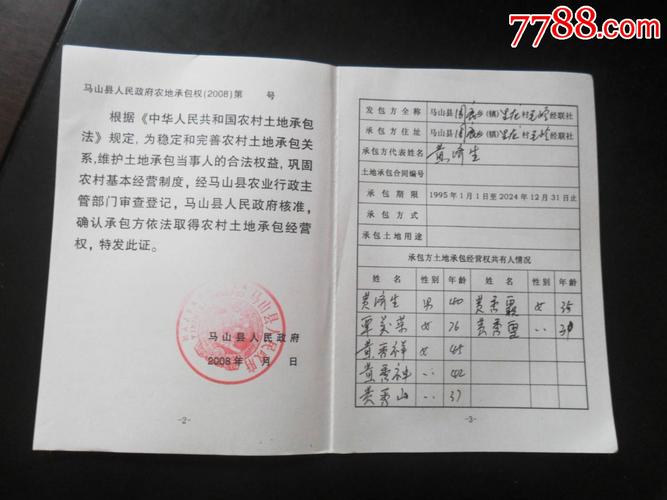 7788.com
马山县人民政府农地承包权(2008)第 号
根据《中华人民共和国农村土地承包
法》规定,为稳定和完善农村土地承包关
系,维护土地承包当事人的合法权益,巩固
农村基本经营制度,经马山县农业行政主
管部门审查登记,马山县人民政府核准,
确认承包方依法取得农村土地承包经营
权,特发此证。
马山县人民政府
马山县人民政府
2008年 月 日
-2-
发包方全称 马山县 乡(镇) 村 经联社
承包方住址 马山县 乡(镇) 村 经联社
承包方代表姓名 黄济生
土地承包合同编号
承包期限 1995年1月1日至2024年12月31日止
承包方式
承包土地用途
承包方土地承包经营权共有人情况
姓名 性别 年龄 姓名 性别 年龄
黄济生 男 40 黄秀 女 35
覃美荣 女 76 黄秀 〃
黄秀祥 女 45
黄秀神 〃 42
黄秀山 〃 37
-3-